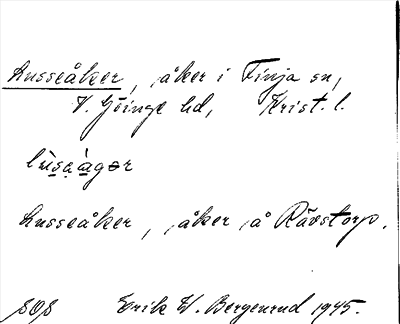 Lusseåker, åker i Finja sn,
V. Göinge hd, Krist. l.
lùsa̧àgər
Lusseåker, åker å Rävstorp.
Erik W. Bergenrud 1945.